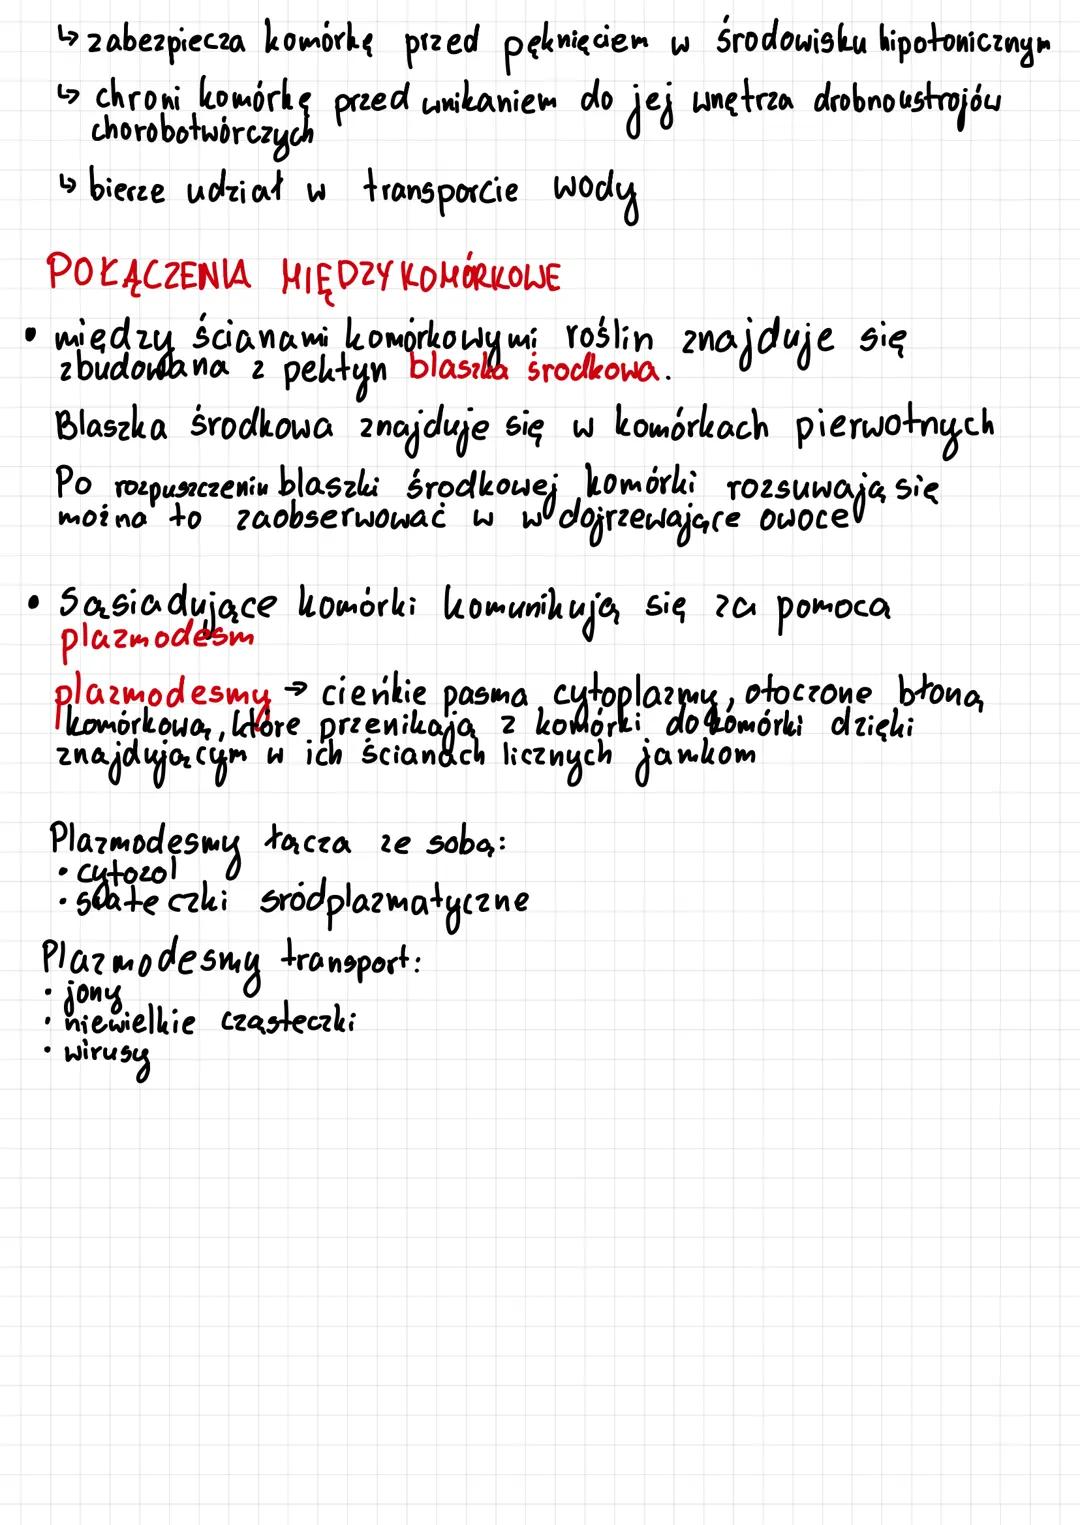 ↳ zabezpiecza komórkę przed pęknięciem w środowisku hipotonicznym
↳ chroni komórkę przed wnikaniem do jej wnętrza drobnoustrojów
chorobotwórczych
↳ bierze udział w transporcie wody
POŁĄCZENIA MIĘDZYKOMÓRKOWE
• między ścianami komórkowymi roślin znajduje się
zbudowana z pektyn blaszka środkowa.
Blaszka środkowa znajduje się w komórkach pierwotnych
Po rozpuszczeniu blaszki środkowej komórki rozsuwają się
można to zaobserwować w w dojrzewające owoce
• Sąsiadujące komórki komunikują się za pomoca
plazmodesm
plazmodesmy → cieńkie pasma cytoplazmy, otoczone błoną
komórkową, które przenikają z komórki do komórki dzięki
znajdującym w ich ścianach licznych jamkom
Plazmodesmy łącza ze sobą:
• cytozol
• siateczki sródplazmatyczne
Plazmodesmy transport:
• jony
• niewielkie cząsteczki
• wirusy